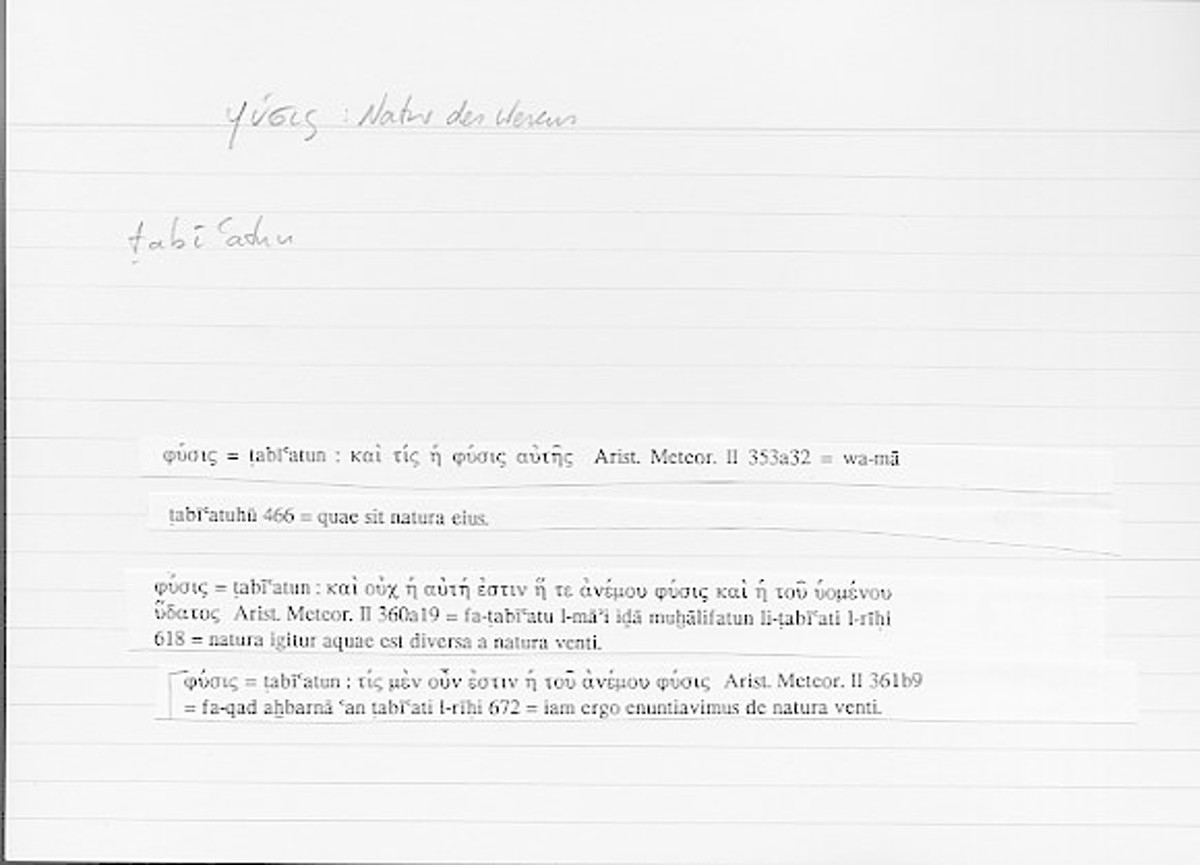 φύσις : Natur des Wesens
ṭabīʿatun
φύσις = ṭabīʿatun : καὶ τίς ἡ φύσις αὐτῆς Arist. Meteor. II 353a32 = wa-mā
ṭabīʿatuhū 466 = quae sit natura eius.
φύσις = ṭabīʿatun : καὶ οὐχ ἡ αὐτή ἐστιν ἥ τε ἀνέμου φύσις καὶ ἡ τοῦ ὑομένου
ὕδατος Arist. Meteor. II 360a19 = fa-ṭabīʿatu l-māʾi iḏā muḫālifatun li-ṭabīʿati l-rīḥi
618 = natura igitur aquae est diversa a natura venti.
φύσις = ṭabīʿatun : τίς μὲν οὖν ἐστιν ἡ τοῦ ἀνέμου φύσις Arist. Meteor. II 361b9
= fa-qad aḫbarnā ʿan ṭabīʿati l-rīḥi 672 = iam ergo enuntiavimus de natura venti.